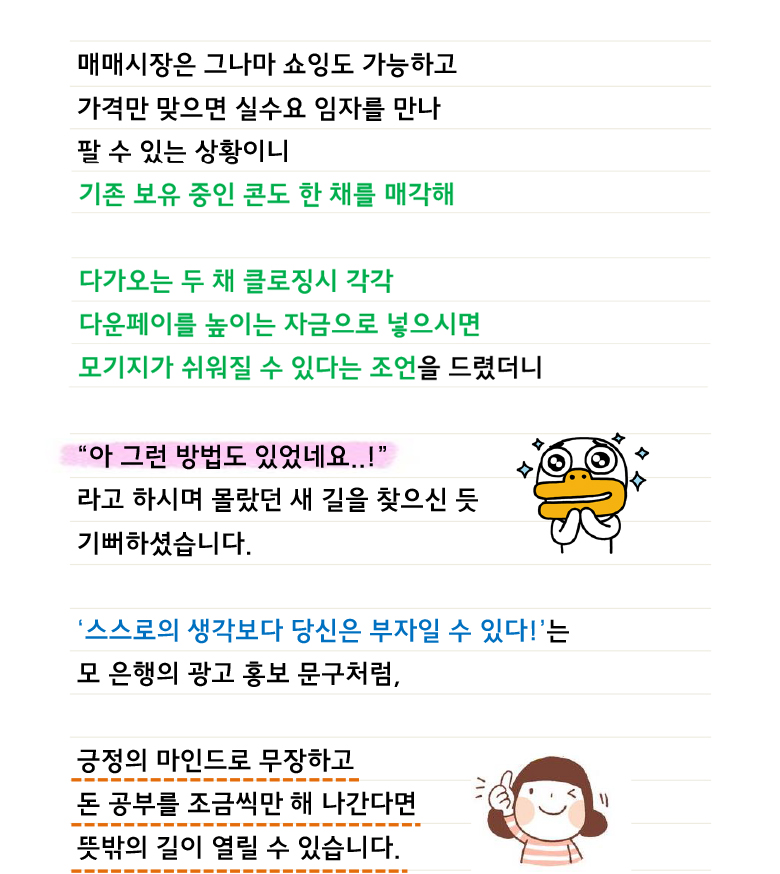 매매시장은 그나마 쇼잉도 가능하고
가격만 맞으면 실수요 임자를 만나
팔 수 있는 상황이니
기존 보유 중인 콘도 한 채를 매각해
다가오는 두 채 클로징시 각각
다운페이를 높이는 자금으로 넣으시면
모기지가 쉬워질 수 있다는 조언을 드렸더니
“아 그런 방법도 있었네요..!”
라고 하시며 몰랐던 새 길을 찾으신 듯
기뻐하셨습니다.
‘스스로의 생각보다 당신은 부자일 수 있다!’는
모 은행의 광고 홍보 문구처럼,
긍정의 마인드로 무장하고
돈 공부를 조금씩만 해 나간다면
뜻밖의 길이 열릴 수 있습니다.